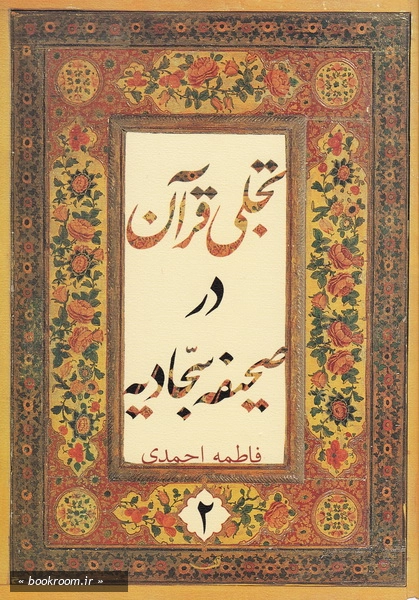 تجلی قرآن
در
صحیفه سجادیه
فاطمه احمدی
۲
« bookroom.ir »